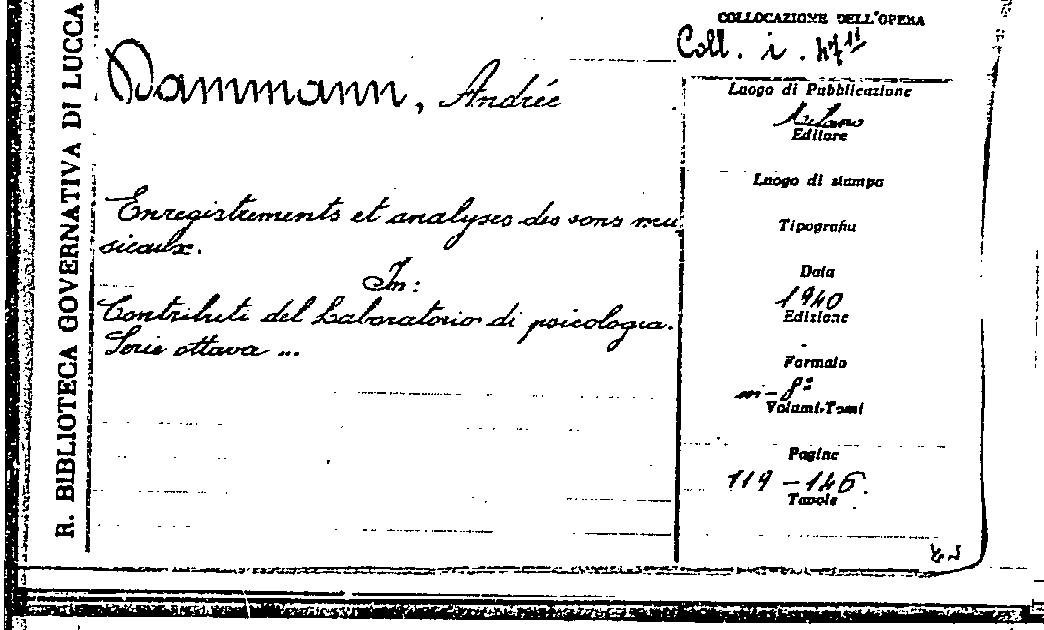 R. BIBLIOTECA GOVERNATIVA DI LUCCA
COLLOCAZIONE DELL'OPERA
Coll. i. 47¹¹
Dammann, Andrée
Enregistrements et analyses des sons mu
sicaux.
In:
Contributi del Laboratorio di psicologia.
Serie ottava ...
Luogo di Pubblicazione
Milano
Editore
Luogo di stampa
Tipografia
Data
1940
Edizione
Formato
in-8º
Volumi-Tomi
Pagine
119-146.
Tavole